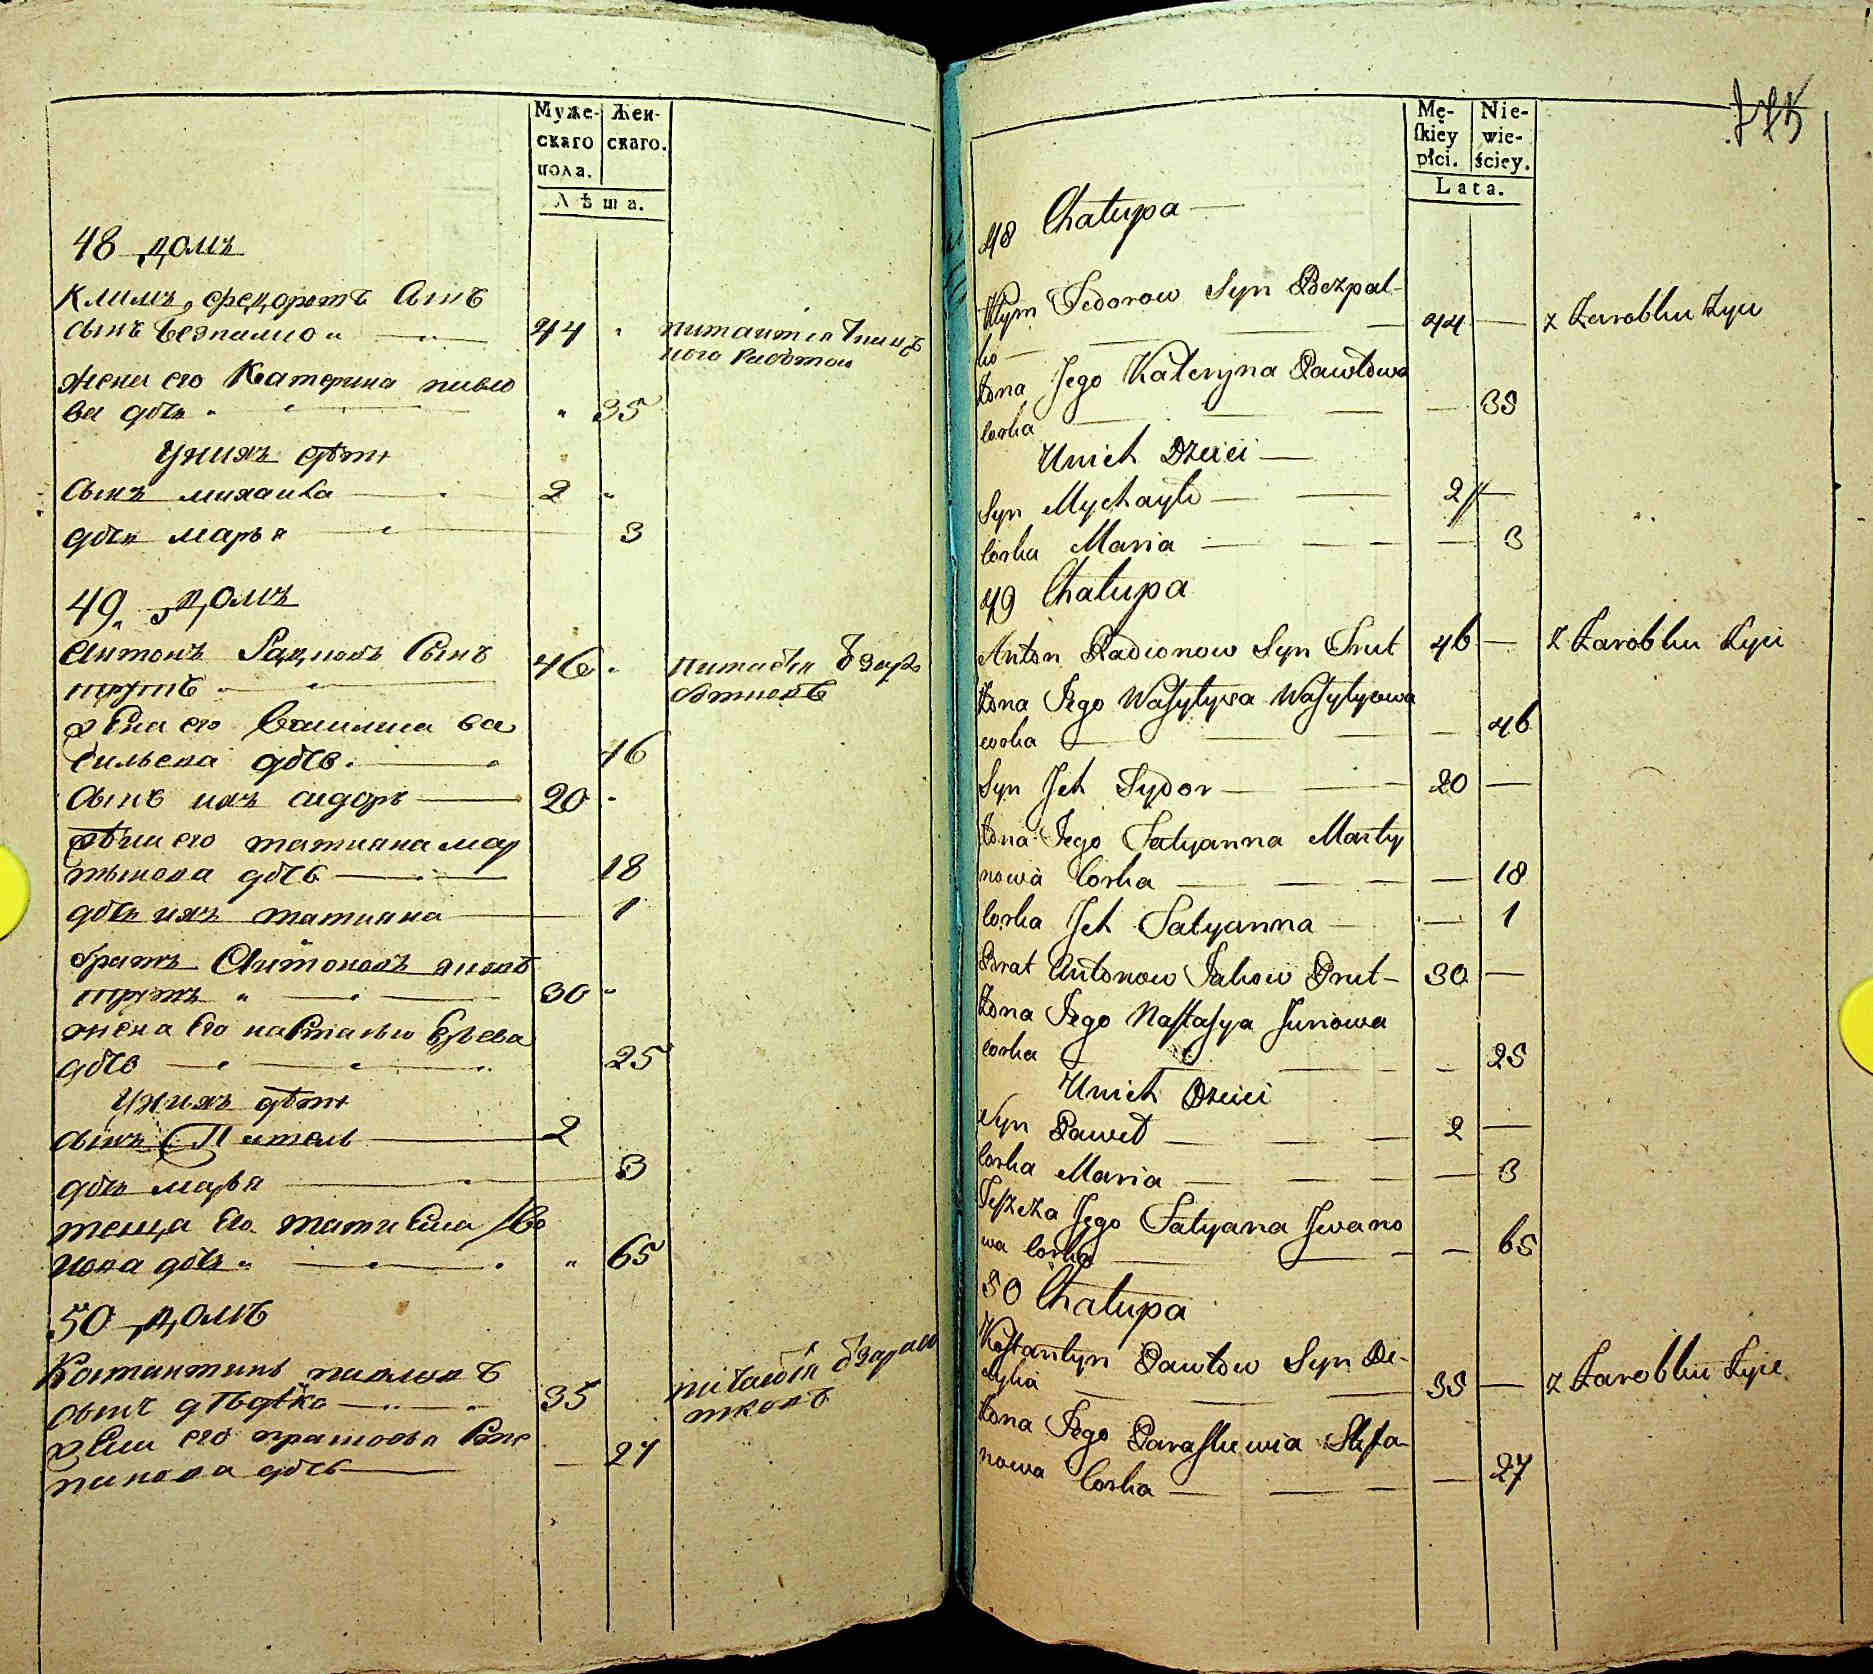 Муже- Жен-
скаго скаго.
пола.
Лѣта.
48 домъ
Климъ Федоровъ Сынъ
сынъ Безпалко 44 питаится
работою
жена его Катерина павло
ва дочь 35
У нихъ дѣти
Сынъ михаила 2
дочь марья 3
49 домъ
Антонъ Радионовъ Сынъ
трутъ 46
жена его Василиса ва
сильева дочь 46
Сынъ ихъ сидоръ 20
жена его татиана мар
тынова дочь 18
дочь ихъ татиана 1
братъ Антоновъ яковъ
трутъ 30
жена Его настасья
дочь 25
У нихъ дѣти
сынъ 2
дочь марья 3
теща Его татиана Ива
нова дочь 65
50 домъ
Костантинъ павловъ
сынъ 35
жена его
дочь 27
Mę- Nie-
ſkiey wie-
płci. ściey.
Lata.
48 Chałupa
Kłym Fedorow Syn Bezpal-
ko 44 z Zarobku Zyie
Zona Jego Kateryna Pawłowa
Corka 35
U nich Dzieci
Syn Mychayło 2
Corka Maria 3
49 Chałupa
Anton Radionow Syn Trut 46 z Zarobku Zyie
Zona Jego Waſylyſsa Waſylyowa
corka 46
Syn Jch Sydor 20
Zona Jego Tatyanna Marty
nowa Corka 18
Corka Jch Tatyanna 1
Brat Antonow Jakow Trut 30
Zona Jego Naſtaſya Juriowa
corka 25
U nich Dzieci
Syn Paweł 2
Corka Maria 3
Teſzcza Jego Tatyana Jwano
wa Corka 65
50 Chałupa
Koſtantyn Pawłow Syn De-
35 z Zarobku Zyie
Zona Jego Paraſkiewia Stefa
nowa Corka 27